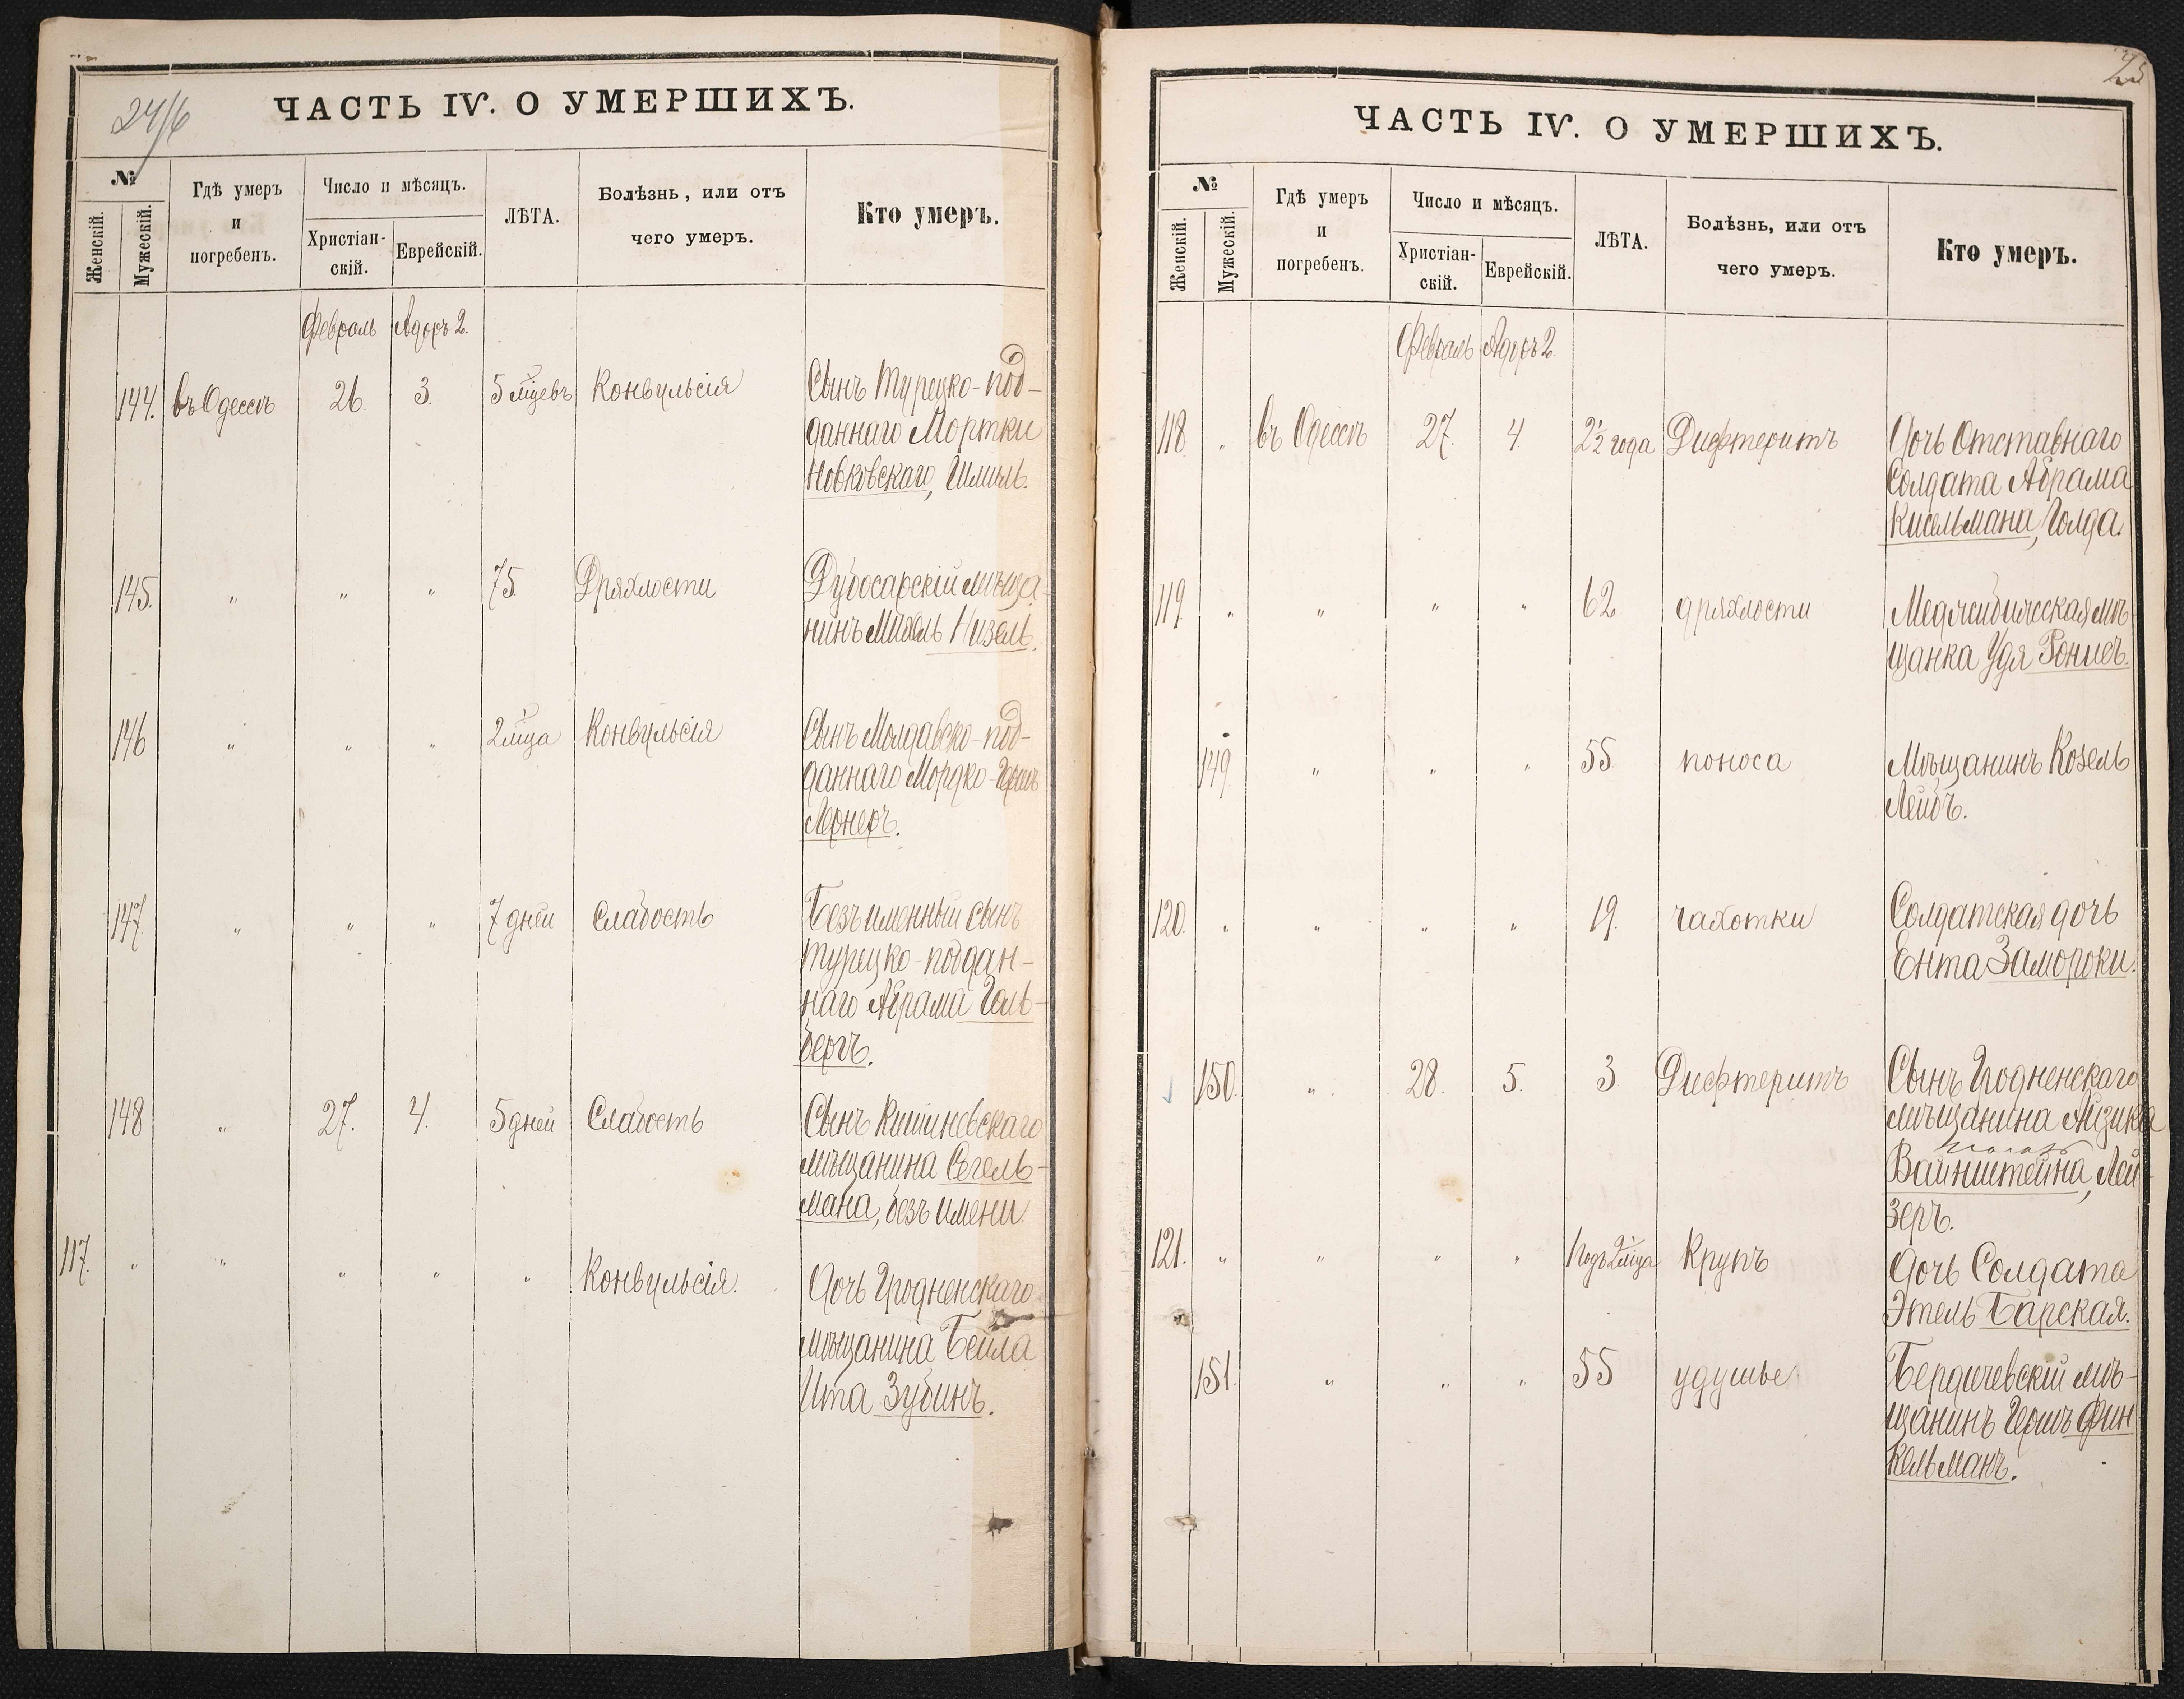 24/6
ЧАСТЬ IV. О УМЕРШИХЪ.
№
Женскій.
Мужескій.
Гдѣ умеръ
и
погребенъ.
Число и мѣсяцъ.
Христіан-
скій.
Еврейскій.
ЛѢТА.
Болѣзнь, или отъ
чего умеръ.
Кто умеръ.
Февраль Адоръ 2.
144. въ Одессѣ 26. 3. 5 м̃цевъ Конвульсія Сынъ Турецко-под-
даннаго Мортки
Новковскаго, Шмиль.
145. „ „ „ 75. Дряхлости Дубосарскій мѣща-
нинъ Михель Низель.
146 „ „ „ 2 м̃ца Конвульсія Сынъ Молдавско-под-
даннаго Мордко-Гершъ
Лернеръ.
147. „ „ „ 7 дней Слабость Безъименный сынъ
Турецко-поддан-
наго Абрама Голь-
бергъ.
148 „ 27. 4. 5 дней Слабость Сынъ Кишиневскаго
мѣщанина Сегель-
мана, безъ имени.
117. „ „ „ „ „ Конвульсія. Дочь Гродненскаго
мѣщанина Бейла
Ита Зубинъ.
25
ЧАСТЬ IV. О УМЕРШИХЪ.
№
Женскій.
Мужескій.
Гдѣ умеръ
и
погребенъ.
Число и мѣсяцъ.
Христіан-
скій.
Еврейскій.
ЛѢТА.
Болѣзнь, или отъ
чего умеръ.
Кто умеръ.
Февраль Адоръ 2.
118 „ въ Одессѣ 27. 4. 2½ года Дифтеритъ Дочь Отставнаго
Солдата Абрама
Кисельмана, Голда.
119. „ „ „ „ 62 дряхлости Меджибижская мѣ-
щанка Удя Рониеъ.
149. „ „ „ 55 поноса Мѣщанинъ Козель
Лейбъ.
120. „ „ „ „ 19. чахотки Солдатская дочь
Ента Замороки.
150. „ 28. 5. 3 Дифтеритъ Сынъ Гродненскаго
мѣщанина Айзика
Вайнштейна, Лей-
зеръ.
121. „ „ „ „ 1 годъ 2 м̃ца Крупъ Дочь Солдата
Этель Барская.
151. „ „ „ 55 удушье Бердичевскій мѣ-
щанинъ Гершъ Фин-
кельманъ.